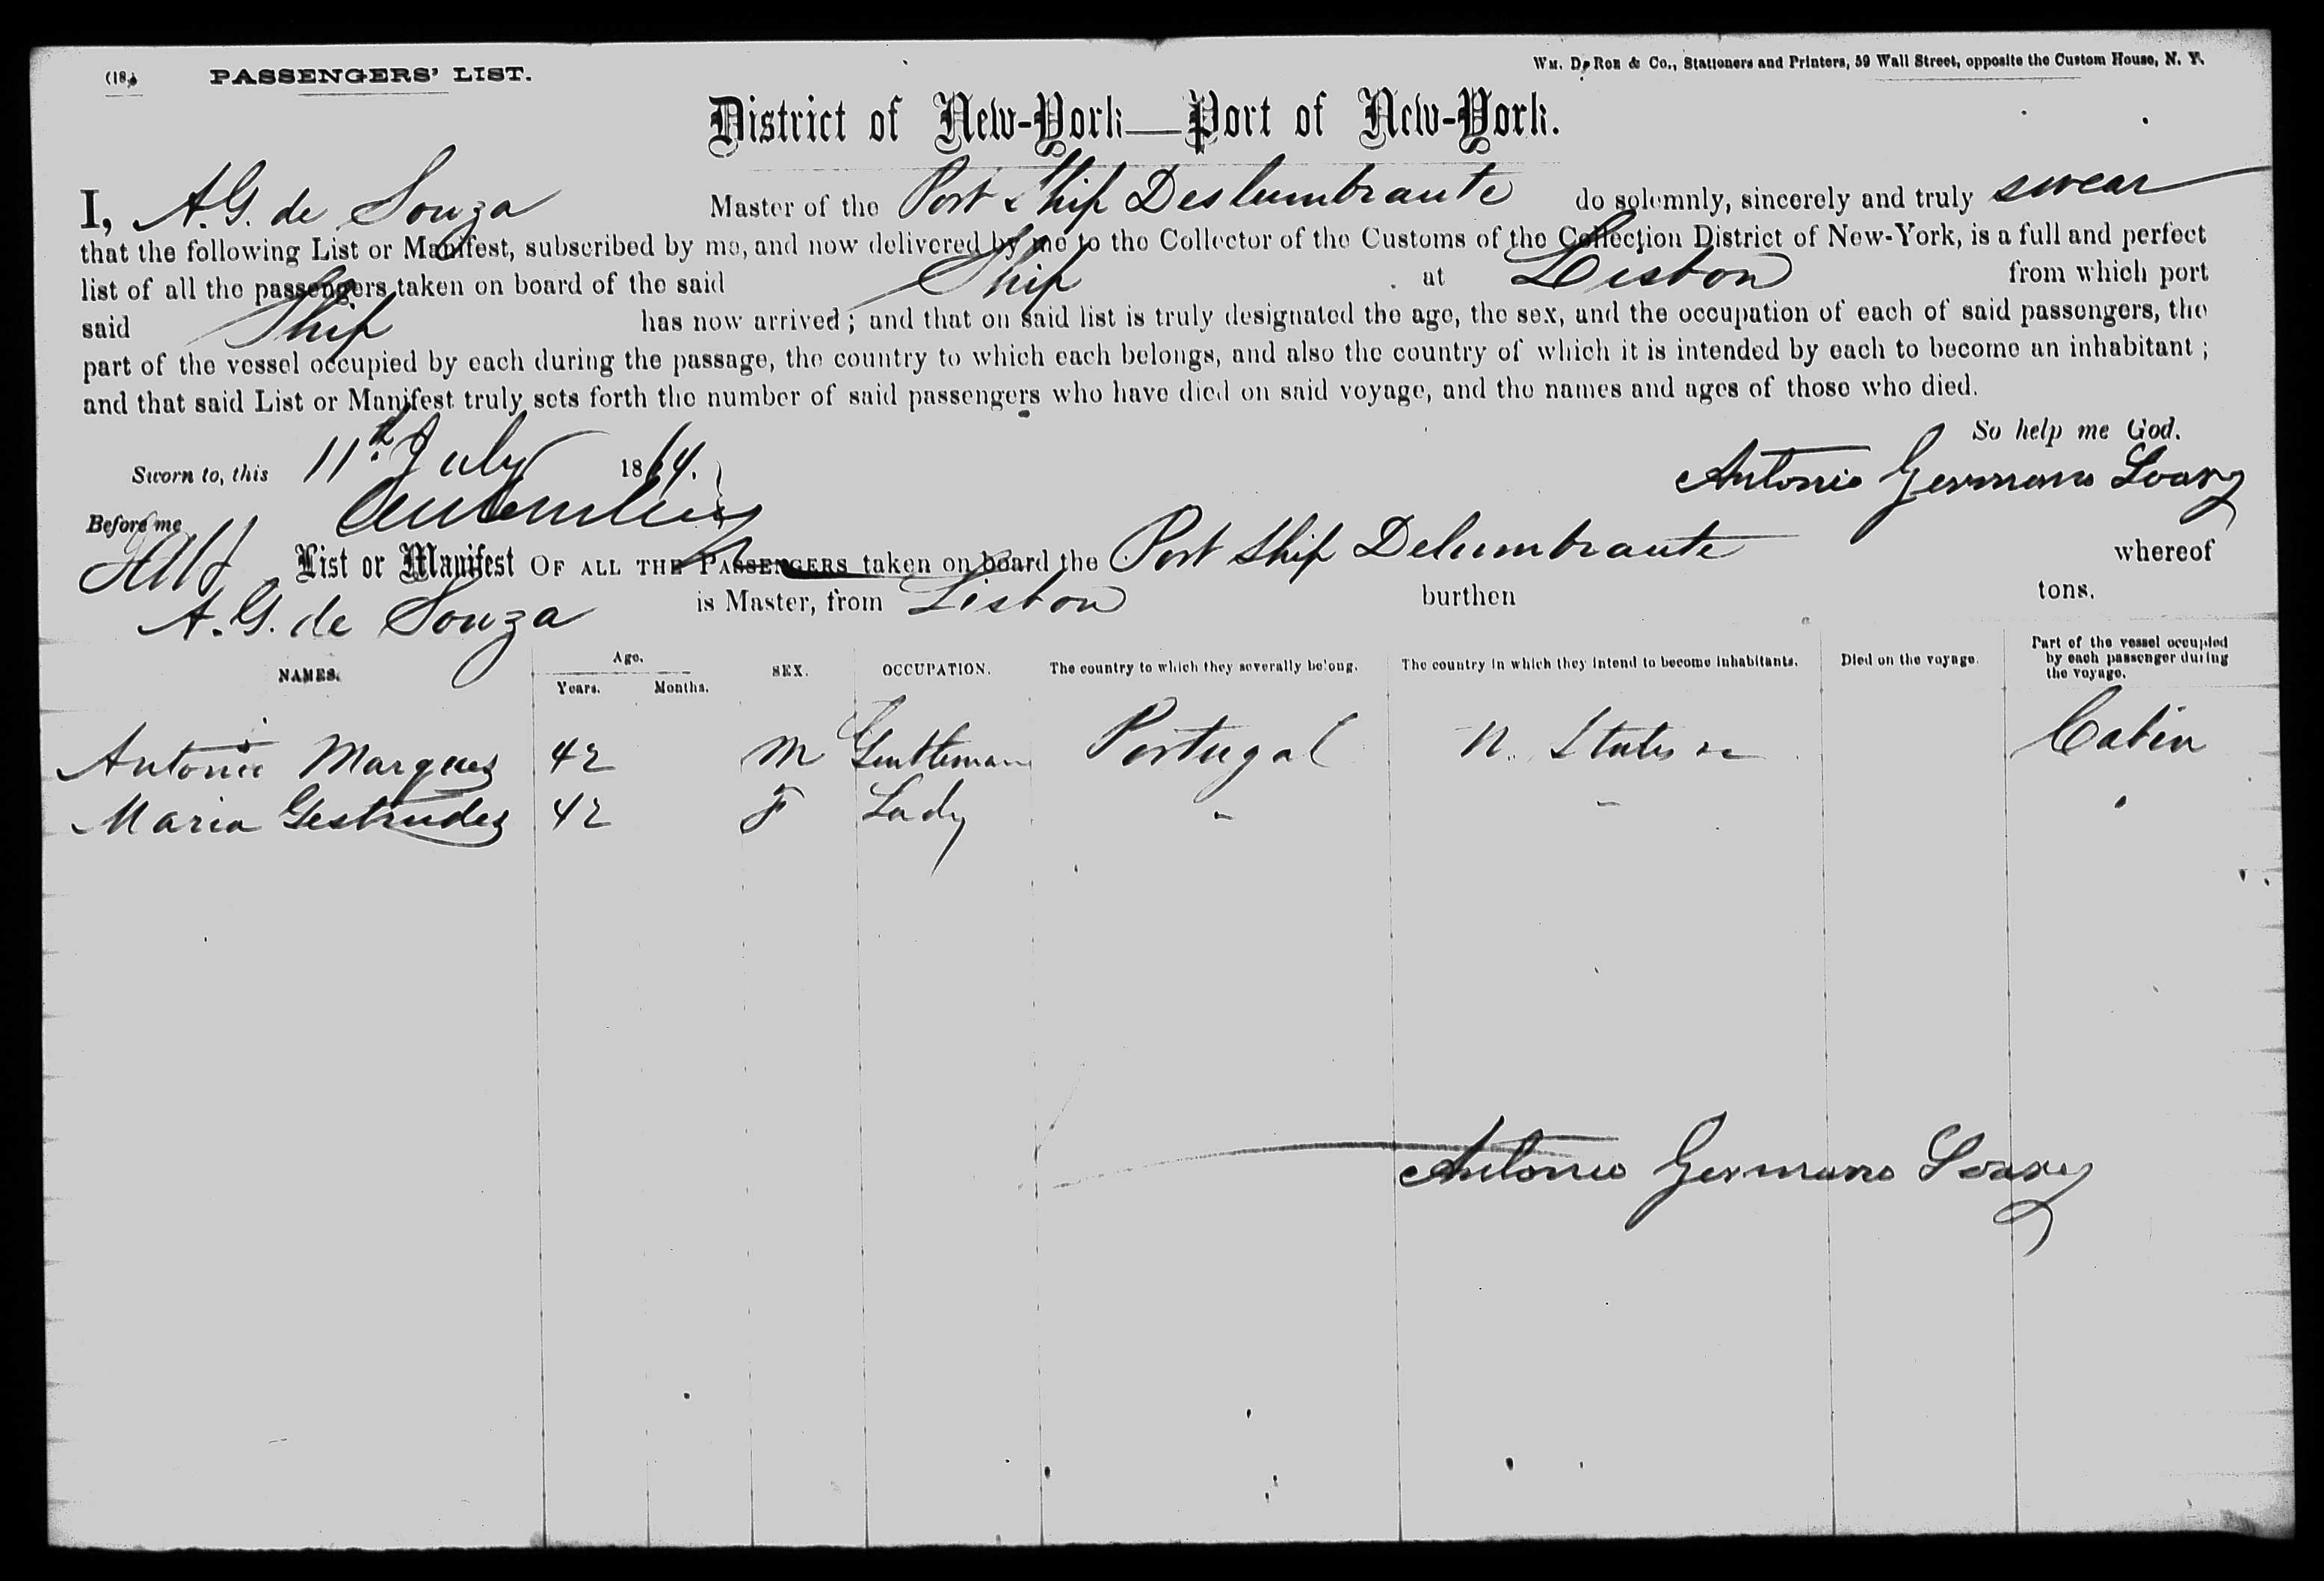 (18.) PASSENGERS' LIST. Wm. DeRoe & Co., Stationers and Printers, 59 Wall Street, opposite the Custom House, N. Y.
District of New-York—Port of New-York.
I, A. G. de Souza Master of the Port Ship Deslumbrante do solemnly, sincerely and truly swear
that the following List or Manifest, subscribed by me, and now delivered by me to the Collector of the Customs of the Collection District of New-York, is a full and perfect
list of all the passengers taken on board of the said Ship at Lisbon from which port
said Ship has now arrived; and that on said list is truly designated the age, the sex, and the occupation of each of said passengers, the
part of the vessel occupied by each during the passage, the country to which each belongs, and also the country of which it is intended by each to become an inhabitant;
and that said List or Manifest truly sets forth the number of said passengers who have died on said voyage, and the names and ages of those who died.
So help me God.
Sworn to, this 11th July 1864. Antonio Germano Soarez
Before me
List or Manifest OF ALL THE PASSENGERS taken on board the Port Ship Delumbrante whereof
A. G. de Souza is Master, from Lisbon burthen tons.
NAMES. Age. Years. Months. SEX. OCCUPATION. The country to which they severally belong. The country in which they intend to become inhabitants. Died on the voyage. Part of the vessel occupied by each passenger during the voyage.
Antonio Marques 42 M Gentleman Portugal U. States Cabin
Maria Gestrudes 42 F Lady " " "
Antonio Germano Soarez